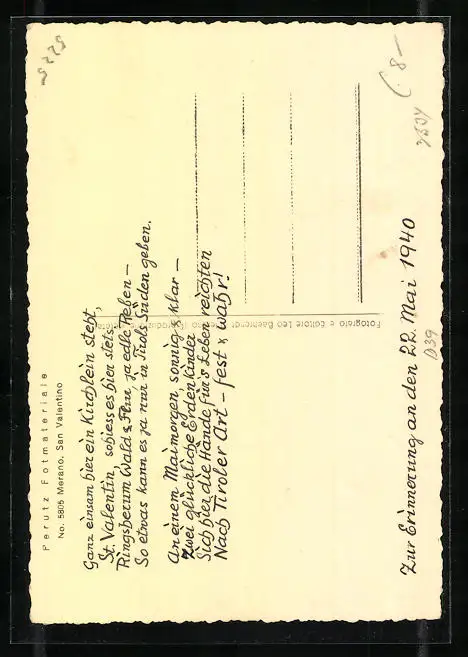 Perutz Fotmateriale
No. 5805 Merano, San Valentino
Ganz einsam hier ein Kirchlein steht,
St. Valentin, so hiess es hier stets.
Ringsherum Wald & Flur, ja edle Reben —
So etwas kann es ja nur in Tirols Süden geben.
An einem Maimorgen, sonnig & klar —
Zwei glückliche Erdenkinder
Sich hier die Hände für's Leben reichten
Nach Tiroler Art – fest & wahr!
Fotografo e Editore Leo Baehrendt
Zur Erinnerung an den 22. Mai 1940
D39
8—